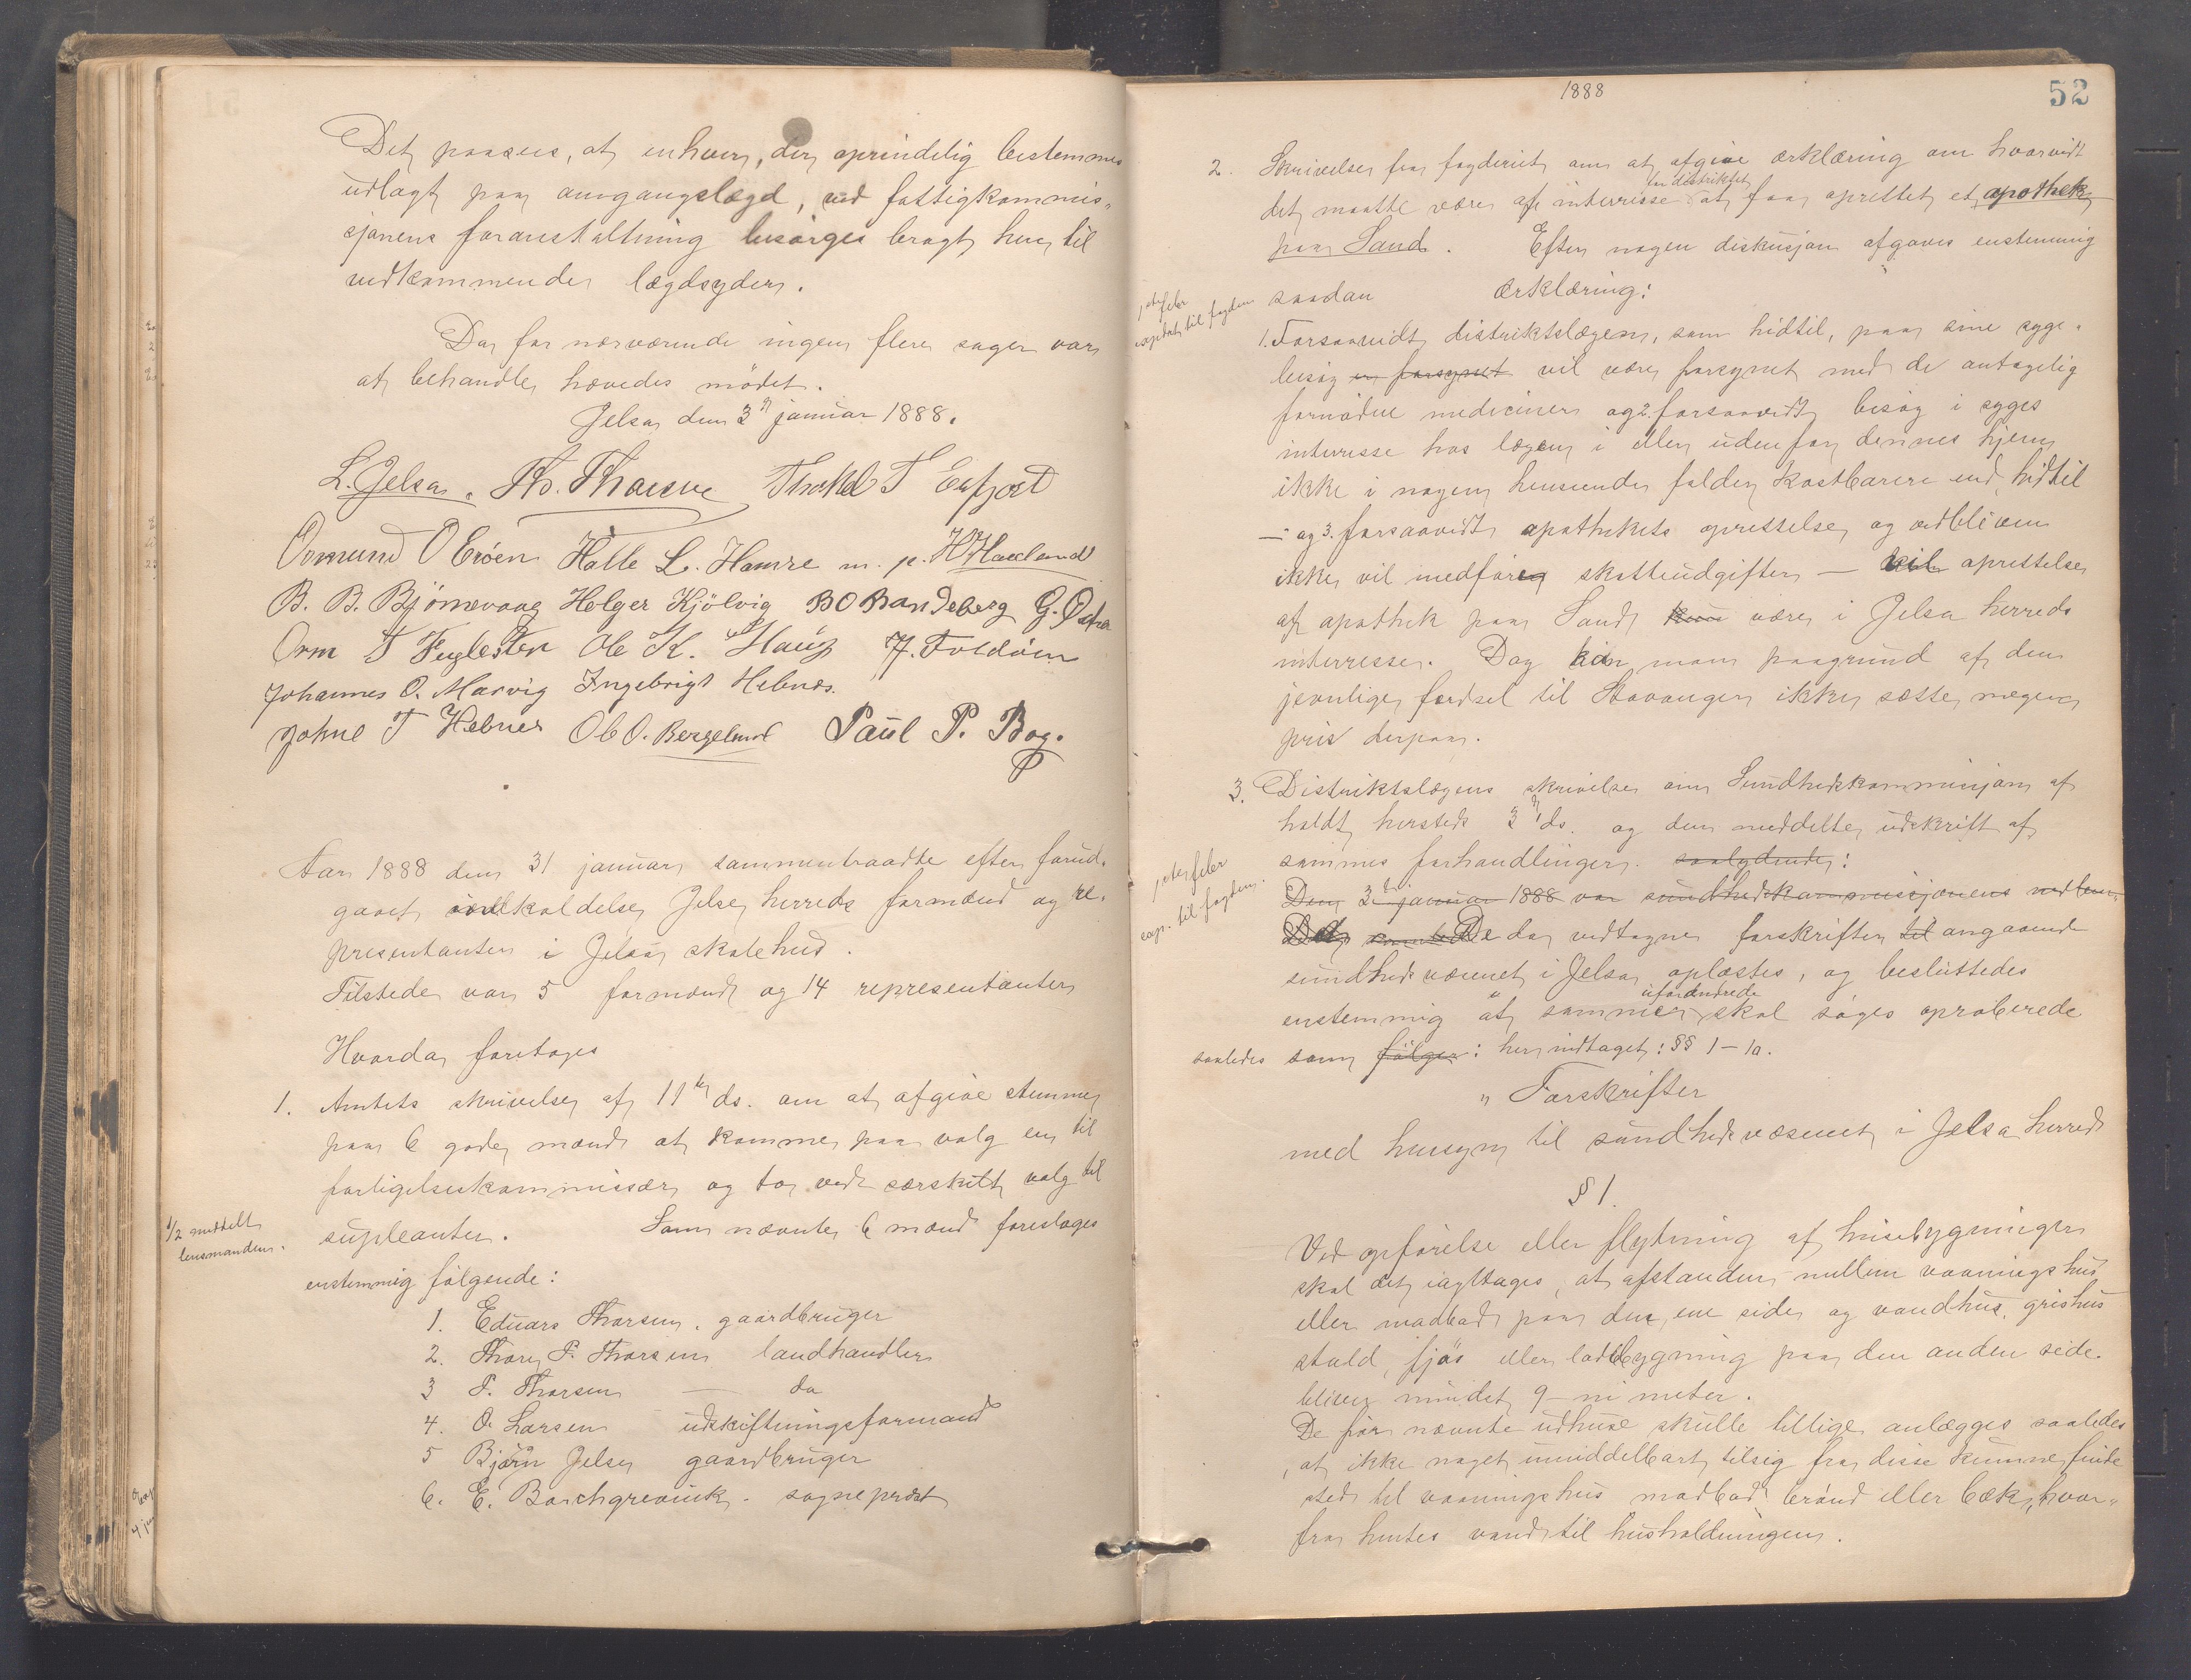 Det paasees, at enhver, der oprindelig bestemmes
udlagt paa omgangslægd, ved fattigkommis-
sjonens foranstaltning besørges bragt hen til
vedkommende lægdsyder.
Da for nærværende ingen flere sager var
at behandle, hævedes mödet.
Jelsa den 3 januar 1888.
L. Jelsa. Th. Thorsen Thorkel T Eafjord
Ormund O Eröen Halle L. Hamre m. p. H Haaland
B. B. Bjørnevaag Holger Kjölvig B O Bandeberg G.
Orm T Fuglesten Ole K. Haug J. Foldöen
Johannes O. Marvig Ingebrigt Hebnes.
John T Hebnes Ole O. Bergeland Paul P. Bog.
Aar 1888 den 31 januar sammentraadte efter forud-
gaaet indkaldelse Jelse herreds formænd og re-
presentanter i Jelsa skolehus.
Tilstede var 5 formænd og 14 representanter
Hvorda foretoges
1. Amtets skrivelse af 11te ds. om at afgive stemme
paa 6 gode mænd at komme paa valg en til
forligelseskommissær og to ved særskilt valg til
1/2 meddelt
lensmanden.
supleanter. Som nævnte 6 mænd foresloges
enstemmig følgende:
1. Eduard Thorsen, gaardbruger
2. Thore P. Thorsen landhandler
3 P. Thorsen — do
4. O. Larsen udskiftningsformand
5 Björn Jelse gaardbruger
6. E. Borchgrevink. sogneprest
1888
52
2. Skrivelse fra fogderiet om at afgive erklæring om hvorvidt
for distriktet
det maatte være af interesse at faa oprettet et apothek
paa Sand. Efter nogen diskusjon afgaves enstemmig
saadan erklæring:
1ste febr
exspedert til fogden
1. Forsaavidt distriktslægen, som hidtil, paa sine syge-
besøg er forsynet vil være forsynet med de antagelig
fornødne mediciner og 2. forsaavidt besøg i syges
interesse hos lægen i eller udenfor dennes hjem
ikke i nogen henseende falder kostbarere end hidtil
— og 3. forsaavidt apothekets oprettelse og vedbliven
ikke vil medføre skatteudgifter — vil oprettelse
af apothek paa Sand kun være i Jelsa herreds
interesse. Dog kan man paagrund af den
jevnlige færdsel til Stavanger ikke sætte megen
pris derpaa.
3. Distriktslægens skrivelse om Sundhedskommisjon af
holdt hersteds 3 ds. og den meddelte udskrift af
sammes forhandlinger. saalydende:
1ste febr
exp. til fogden.
Den 3 januar 1888 var sundhedskommissjonens medlem
De da vedtagne forskrifter til angaaende
sundhedsvæsenet i Jelsa oplæstes, og besluttedes
uforandrede
enstemmig at samme skal søges aproberede
saaledes som følger: her indtaget: §§ 1-10.
" Forskrifter
med hensyn til sundhedsvæsenet i Jelsa herred
§ 1.
Ved opførelse eller flytning af husebygninger
skal det iagttages, at afstanden mellem vaaningshus
eller madbod paa den ene side og vandhus, grishus
stald, fjøs eller ladebygning paa den anden side
bliver mindst 9 — ni meter.
De før nævnte udhuse skulle tillige anlægges saaledes
, at ikke noget umiddelbart tilsig fra disse kunne finde
sted til vaaningshus madbod brønd eller bæk, hvor-
fra hentes vand til husholdningen.